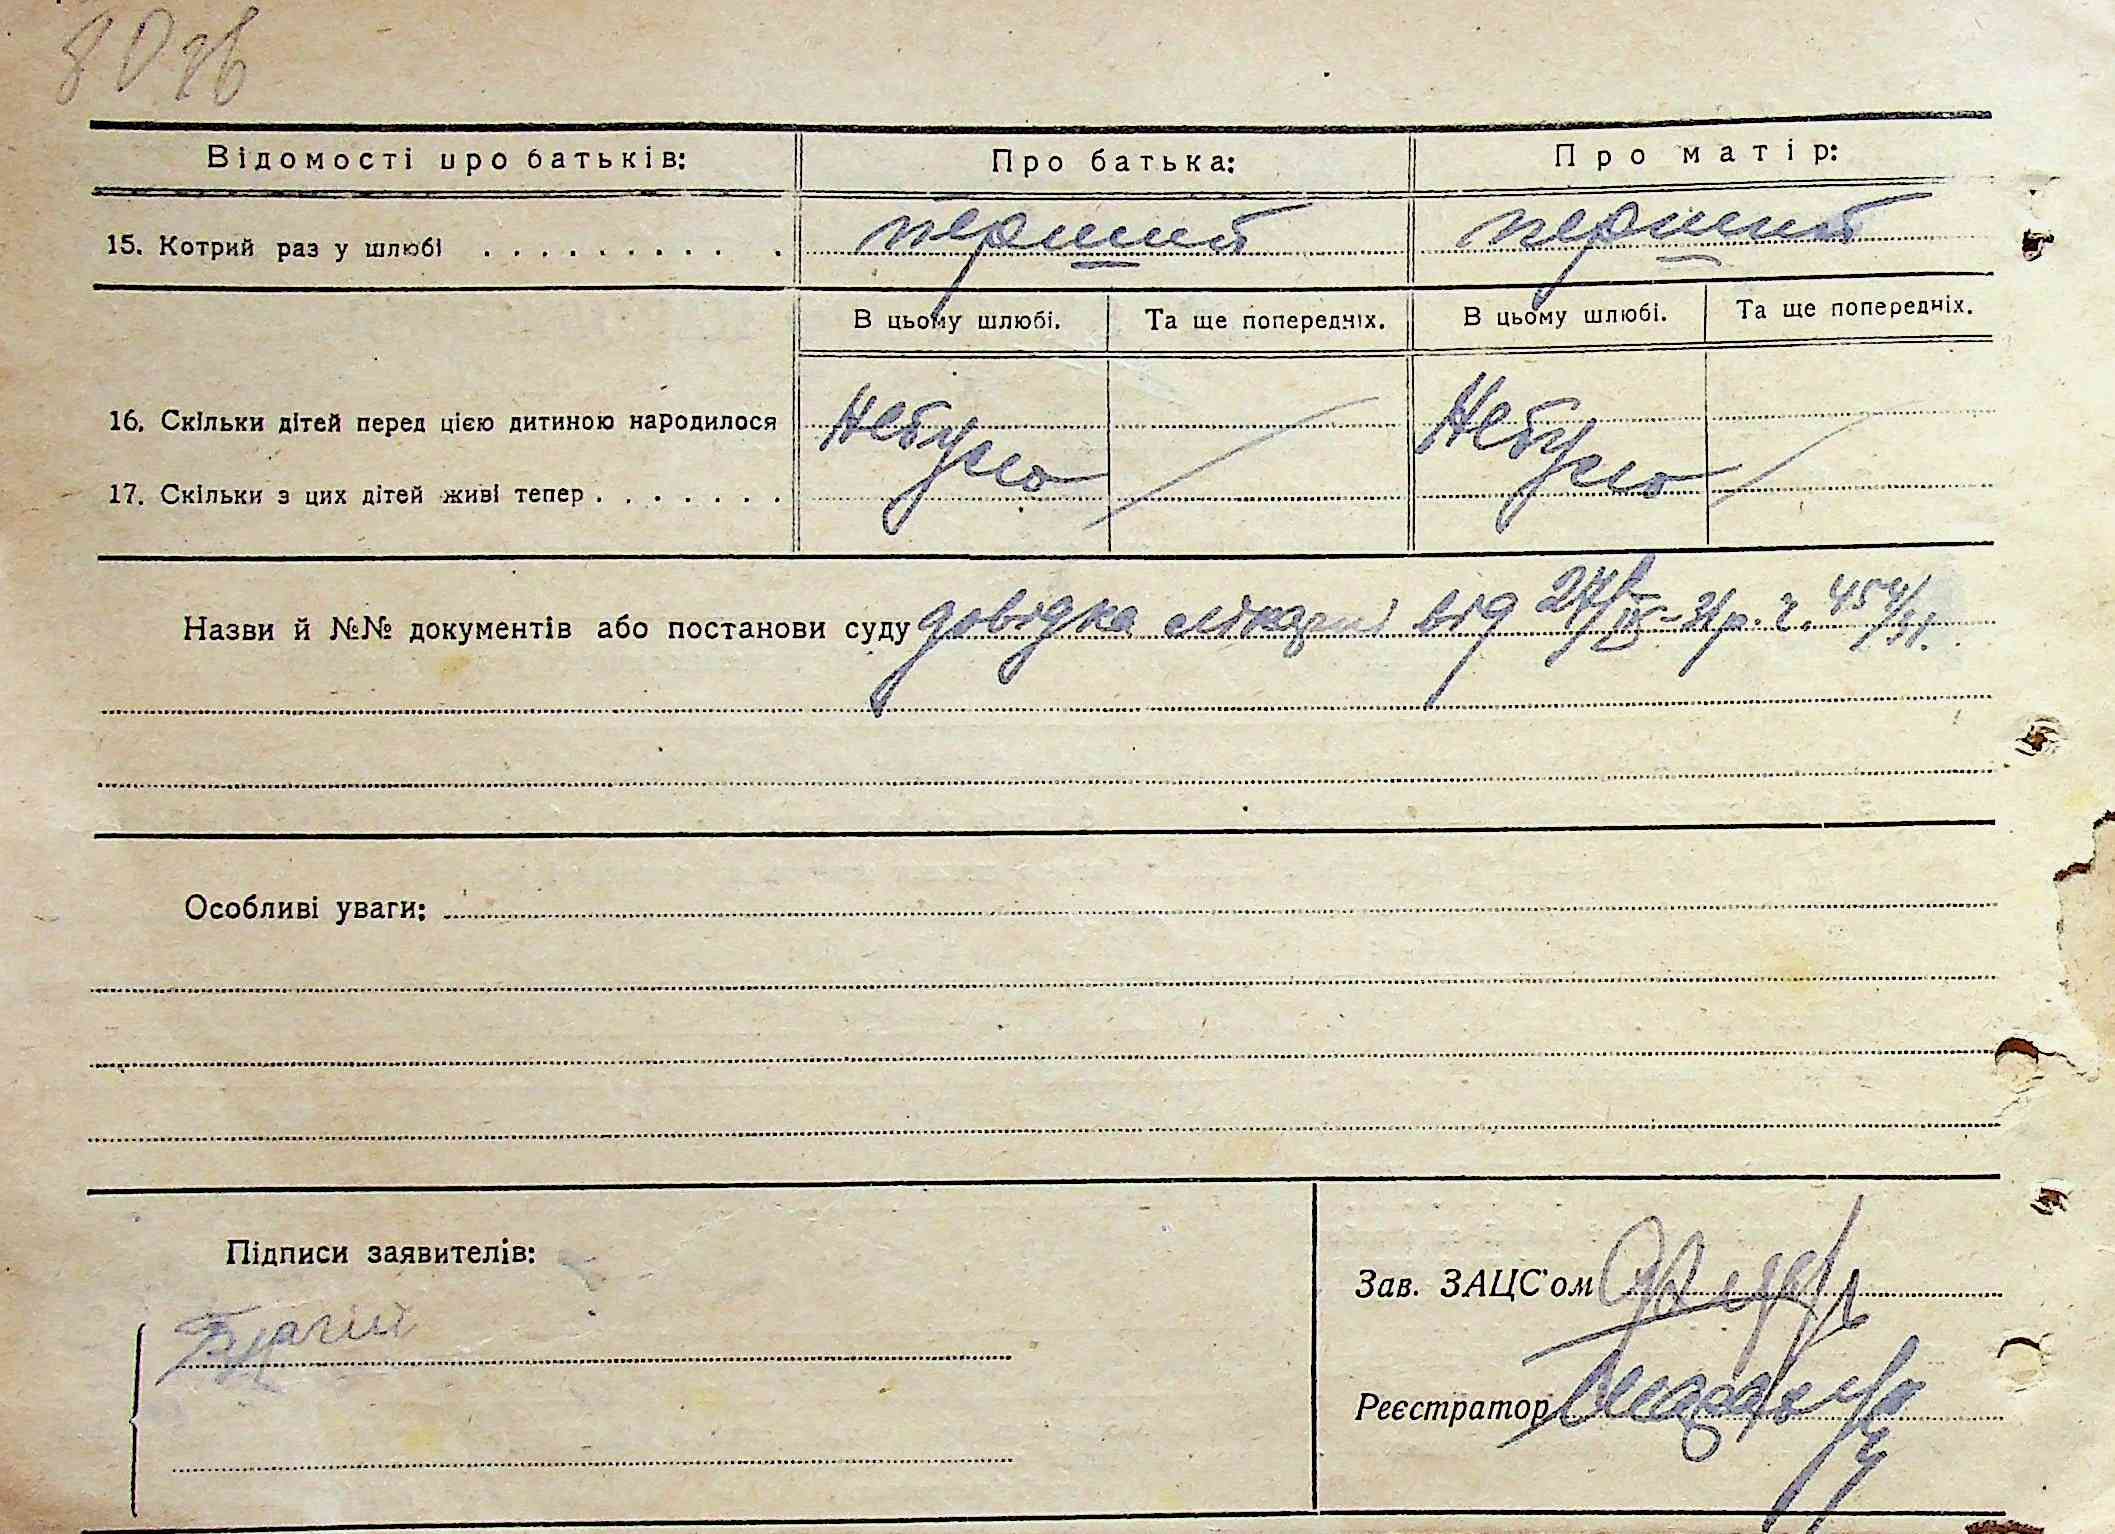 80 зв
Відомості про батьків: Про батька: Про матір:
15. Котрий раз у шлюбі . . . . . . . . . . перший перший
В цьому шлюбі. Та ще попередніх. В цьому шлюбі. Та ще попередніх.
16. Скільки дітей перед цією дитиною народилося Небуло Небуло
17. Скільки з цих дітей живі тепер . . . . . . .
Назви й №№ документів або постанови суду довідка лікарні від 27/IX-31р. ч. 454/31.
Особливі уваги:
Підписи заявителів:
Зав. ЗАЦС'ом
Реєстратор